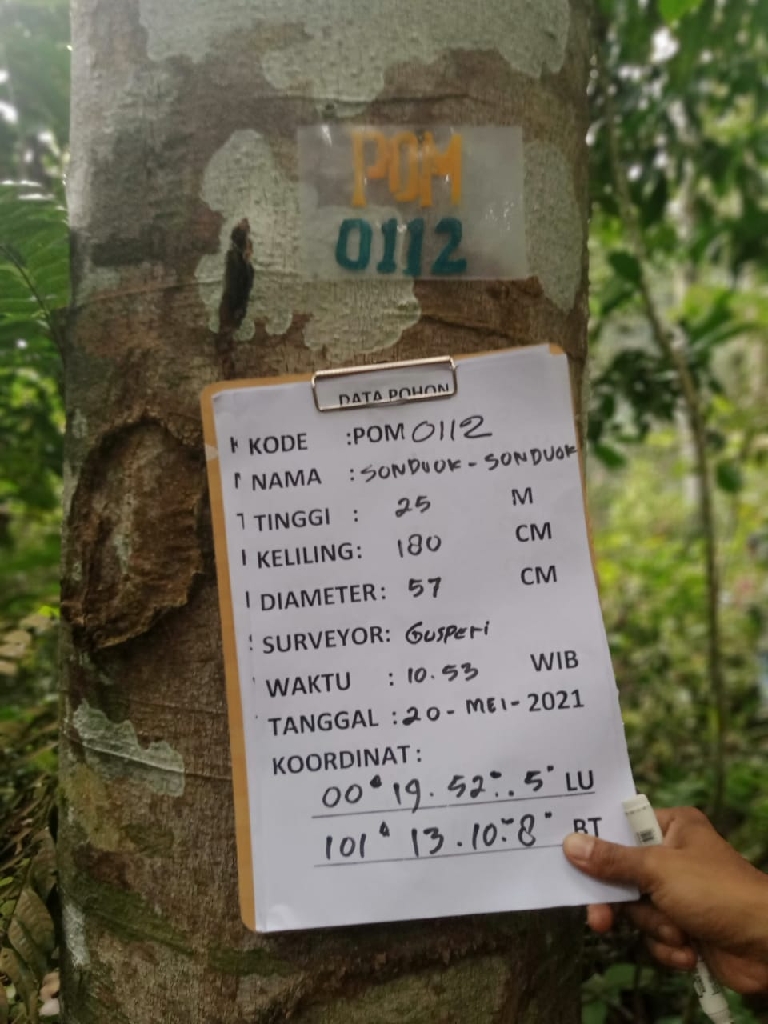 POM
0112
DATA POHON
KODE :POM 0112
NAMA : SONDUOK - SONDUOK
TINGGI : 25 M
KELILING: 180 CM
DIAMETER: 57 CM
SURVEYOR: Gusperi
WAKTU : 10.53 WIB
TANGGAL : 20 - MEI - 2021
KOORDINAT :
00° 19. 52". 5" LU
101° 13. 10." 8" BT